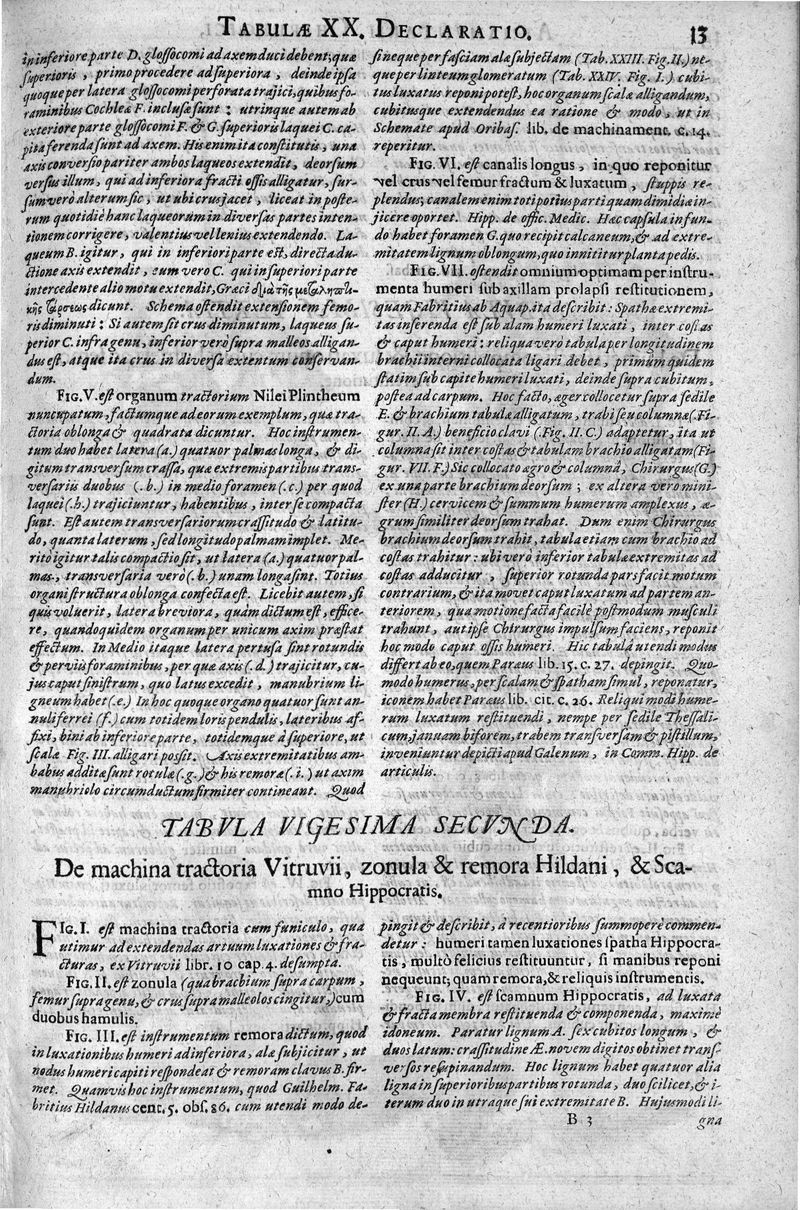 TABULÆ XX. DECLARATIO.
13
in inferiore parte D. glossocomi ad axem duci debent; quæ
superioris, primo procedere ad superiora, deinde ipsa
quoque per latera glossocomi perforata trajici, quibus fo-
raminibus Cochleæ F. inclusæ sunt: utrinque autem ab
exteriore parte glossocomi F. & G. superioris laquei C. ca-
pita ferenda sunt ad axem. His enim ita constitutis, una
axis conversio pariter ambos laqueos extendit, deorsum
versus illum, qui ad inferiora fracti ossis alligatur, sur-
sum verò alterum sic, ut ubi crus jacet, liceat in poste-
rum quotidiè hanc laqueorum in diversas partes inten-
tionem corrigere, valentius vel lenius extendendo. La-
queum B. igitur, qui in inferiori parte est, directa du-
ctione axis extendit, eum vero C. qui in superiori parte
intercedente alio motu extendit, Græci διὰ τῆς μεταληπτι-
κῆς τάσεως dicunt. Schema ostendit extensionem femo-
ris diminuti: Si autem sit crus diminutum, laqueus su-
perior C. infra genu, inferior verò supra malleos alligan-
dus est, atque ita crus in diversa extentum conservan-
dum.
FIG. V. est organum tractorium Nilei Plintheum
nuncupatum, factumque ad eorum exemplum, quæ tra-
ctoria oblonga & quadrata dicuntur. Hoc instrumen-
tum duo habet latera (a.) quatuor palmas longa, & di-
gitum transversum crassa, quæ extremis partibus trans-
versariis duobus (.b.) in medio foramen (.c.) per quod
laquei (.h.) trajiciuntur, habentibus, inter se compacta
sunt. Est autem transversariorum crassitudo & latitu-
do, quanta laterum, sed longitudo palmam implet. Me-
ritò igitur talis compactio sit, ut latera (a.) quatuor pal-
mas, transversaria verò (.b.) unam longa sint. Totius
organi structura oblonga confecta est. Licebit autem, si
quis voluerit, latera breviora, quàm dictum est, effice-
re, quandoquidem organum per unicum axim præstat
effectum. In Medio itaque latera pertusa sint rotundis
& perviis foraminibus, per quæ axis (.d.) trajicitur, cu-
jus caput sinistrum, quo latus excedit, manubrium li-
gneum habet (.e.) In hoc quoque organo quatuor sunt an-
nuli ferrei (f.) cum totidem loris pendulis, lateribus af-
fixi, bini ab inferiore parte, totidemque à superiore, ut
scalæ Fig. III. alligari possit. Axis extremitatibus am-
babus additæ sunt rotulæ (.g.) & his remoræ (.i.) ut axim
manubriolo circumductum firmiter contineant. Quod
sineque per fasciam alæ subjectam (Tab. XXIII. Fig. II.) ne-
que per linteum glomeratum (Tab. XXIV. Fig. I.) cubi-
tus luxatus reponi potest, hoc organum scalæ alligandum,
cubitusque extendendus ea ratione & modo, ut in
Schemate apud Oribas. lib. de machinament. c. 14.
reperitur.
FIG. VI. est canalis longus, in quo reponitur
vel crus vel femur fractum & luxatum, stuppis re-
plendus; canalem enim toti potius parti quam dimidiæ in-
jicere oportet. Hipp. de offic. Medic. Hæc capsula in fun-
do habet foramen G. quo recipit calcaneum, & ad extre-
mitatem lignum oblongum, quo innititur planta pedis.
FIG. VII. ostendit omnium optimam per instru-
menta humeri sub axillam prolapsi restitutionem,
quam Fabritius ab Aquap. ita describit: Spathæ extremi-
tas inserenda est sub alam humeri luxati, inter costas
& caput humeri: reliqua verò tabula per longitudinem
brachii interni collocata ligari debet, primùm quidem
statim sub capite humeri luxati, deinde supra cubitum,
postea ad carpum. Hoc facto, æger collocetur supra sedile
E. & brachium tabulæ alligatum, trabi seu columnæ (.Fi-
gur. II. A.) beneficio clavi (.Fig. II. C.) adaptetur, ita ut
columna sit inter costas & tabulam brachio alligatam (Fi-
gur. VII. F.) Sic collocato ægro & columnâ, Chirurgus (G.)
ex una parte brachium deorsum; ex altera vero mini-
ster (H.) cervicem & summum humerum amplexus, æ-
grum similiter deorsum trahat. Dum enim Chirurgus
brachium deorsum trahit, tabula etiam cum brachio ad
costas trahitur: ubi verò inferior tabulæ extremitas ad
costas adducitur, superior rotunda pars facit motum
contrarium, & ita movet caput luxatum ad partem an-
teriorem, qua motione facta facilè postmodum musculi
trahunt, aut ipse Chirurgus impulsum faciens, reponit
hoc modo caput ossis humeri. Hic tabulâ utendi modus
differt ab eo, quem Paræus lib. 15. c. 27. depingit. Quo-
modo humerus, per scalam & spatham simul, reponatur,
iconem habet Paræus lib. cit. c. 26. Reliqui modi hume-
rum luxatum restituendi, nempe per sedile Thessali-
cum, januam biforem, trabem transversam & pistillum,
inveniuntur depicti apud Galenum, in Comm. Hipp. de
articulis.
TABVLA VIGESIMA SECVNDA.
De machina tractoria Vitruvii, zonula & remora Hildani, & Sca-
mno Hippocratis.
FIG. I. est machina tractoria cum funiculo, qua
utimur ad extendendas artuum luxationes & fra-
cturas, ex Vitruvii libr. 10 cap. 4. desumpta.
FIG. II. est zonula (qua brachium supra carpum,
femur supra genu, & crus supra malleolos cingitur,) cum
duobus hamulis.
FIG. III. est instrumentum remora dictum, quod
in luxationibus humeri ad inferiora, alæ subjicitur, ut
nodus humeri capiti respondeat & remoram clavus B. fir-
met. Quamvis hoc instrumentum, quod Guilhelm. Fa-
britius Hildanus cent. 5. obs. 86. cum utendi modo de-
pingit & describit, à recentioribus summoperè commen-
detur: humeri tamen luxationes spatha Hippocra-
tis, multò felicius restituuntur, si manibus reponi
nequeunt, quam remora, & reliquis instrumentis.
FIG. IV. est scamnum Hippocratis, ad luxata
& fracta membra restituenda & componenda, maximè
idoneum. Paratur lignum A. sex cubitos longum, &
duos latum: crassitudine Æ. novem digitos obtinet trans-
versos resupinandum. Hoc lignum habet quatuor alia
ligna in superioribus partibus rotunda, duo scilicet, & i-
terum duo in utraque sui extremitate B. Hujusmodi li-
B 3
gna